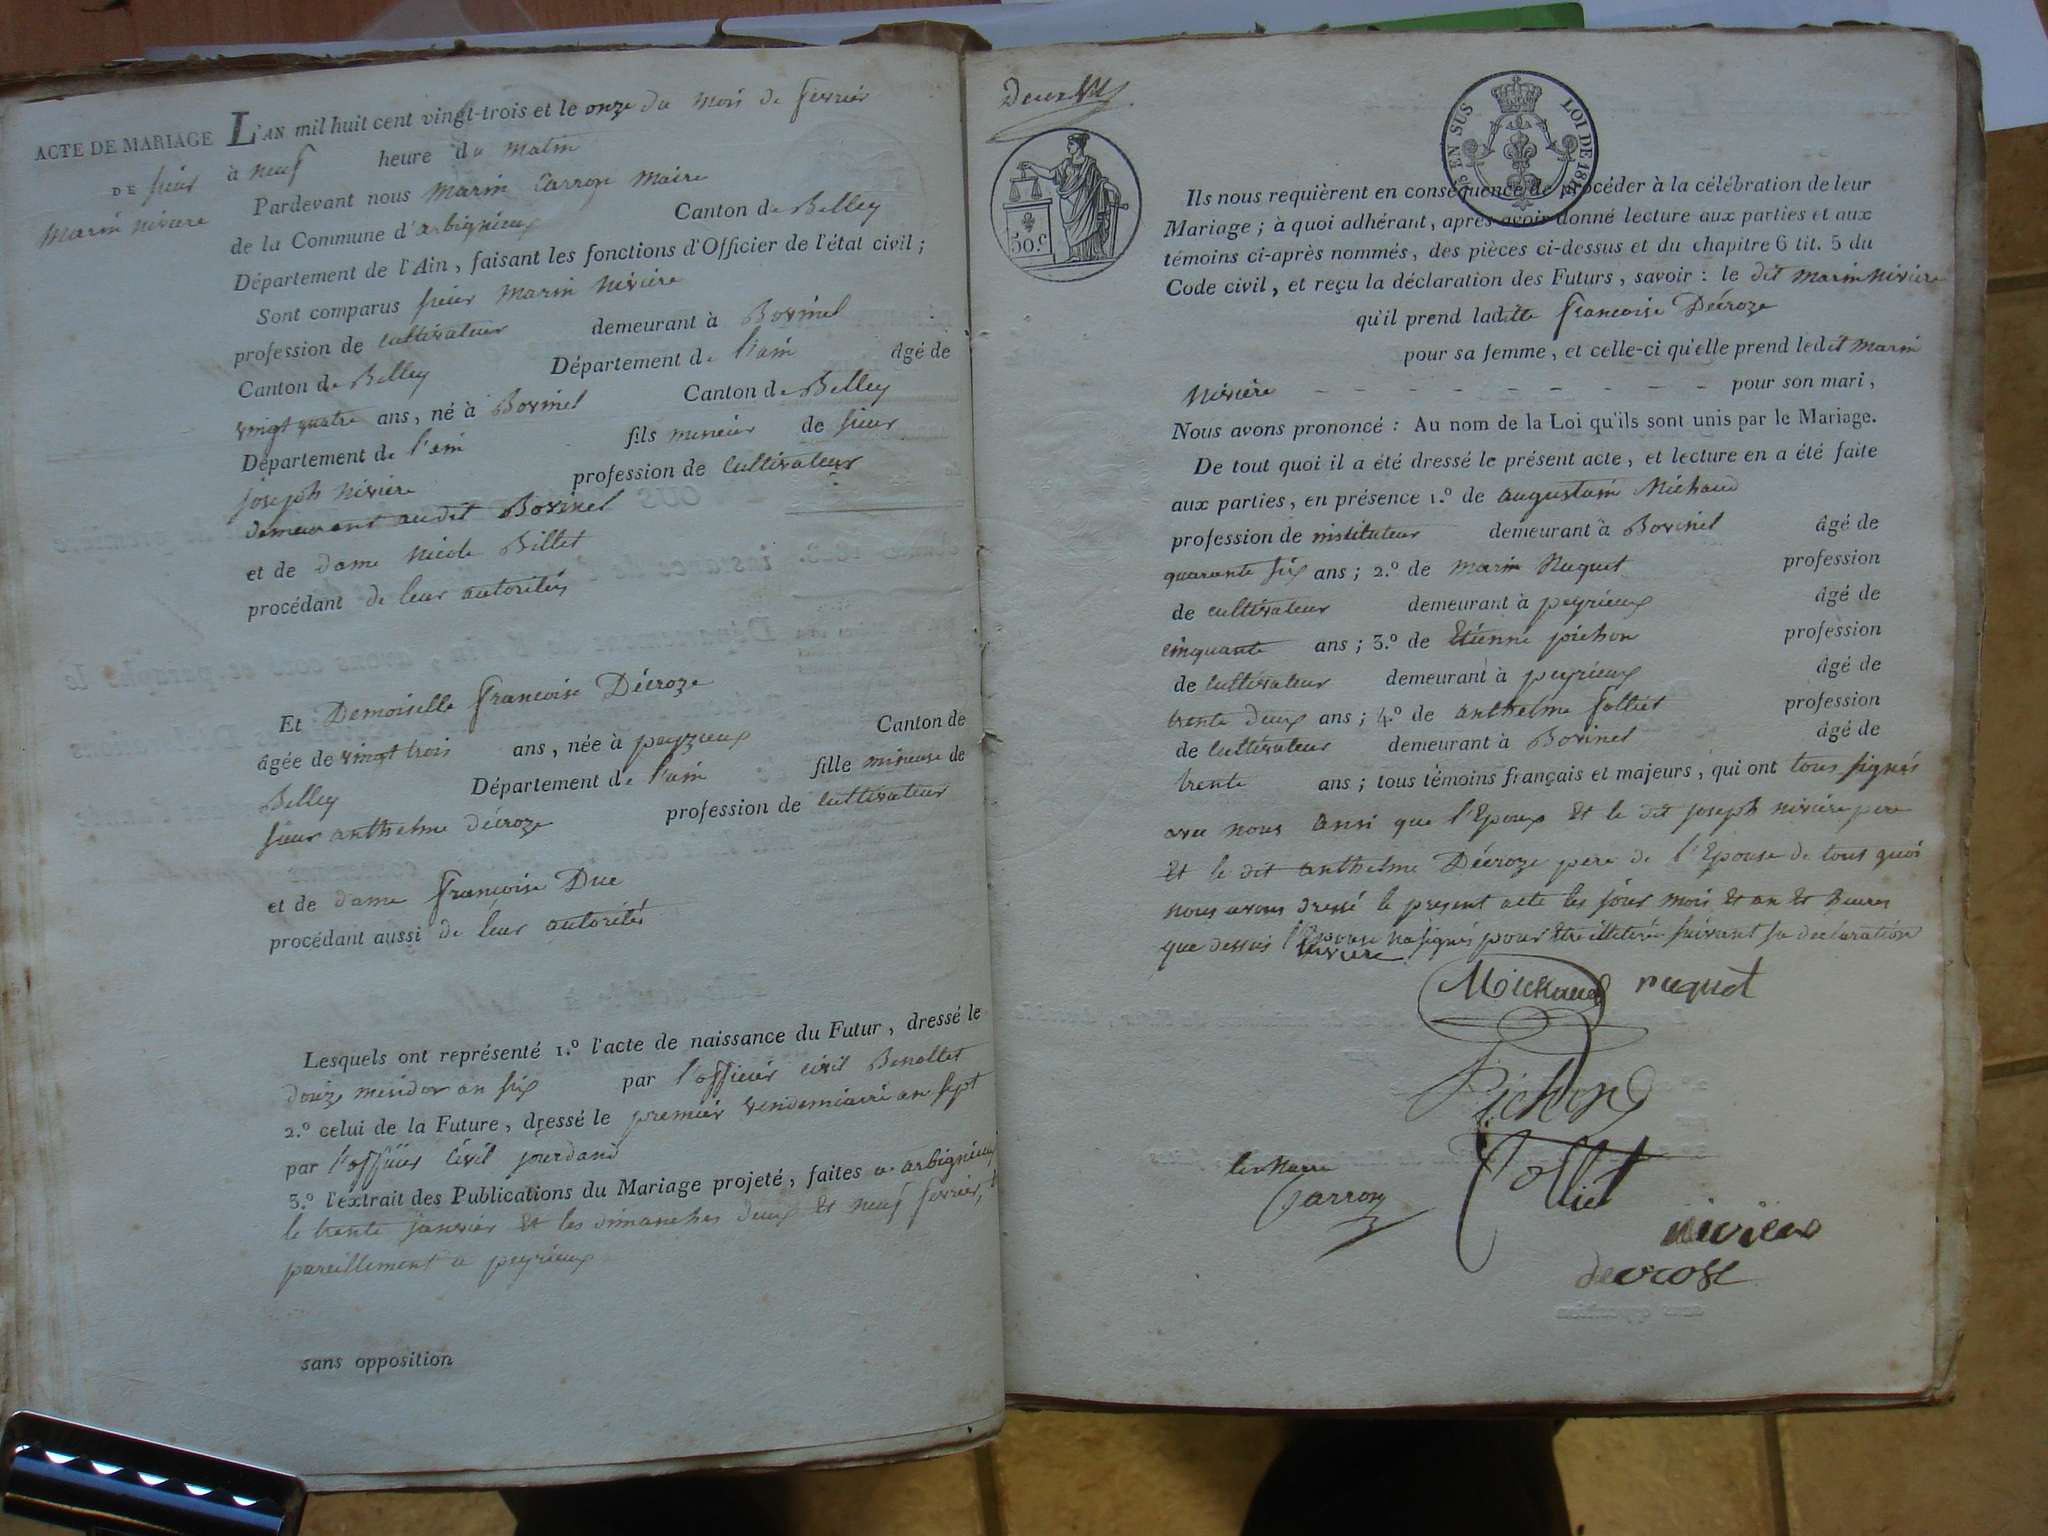 ACTE DE MARIAGE
DE sieur
Marin nivière
L'AN mil huit cent vingt-trois et le onze du mois de fevrier
à neuf heure du matin
Pardevant nous Marin Carron Maire
de la Commune d'arbignieux Canton de Belley
Département de l'Ain, faisant les fonctions d'Officier de l'état civil;
Sont comparus sieur Marin Nivière
profession de cultivateur demeurant à Bovinel
Canton de Belley Département de l'ain âgé de
vingt quatre ans, né à Bovinel Canton de Belley
Département de l'ain fils mineur de sieur
joseph nivière profession de cultivateur
demeurant audit Bovinel
et de dame nicole Billet
procédant de leur autorités
Et Demoiselle francoise Décroze
âgée de vingt trois ans, née à peyzieux Canton de
Belley Département de l'ain fille mineuse de
sieur anthelme décroze profession de cultivateur
et de dame francoise Duc
procédant aussi de leur autorités
Lesquels ont représenté 1.º l'acte de naissance du Futur, dressé le
douze mesidor an six par l'officier civil Benollet
2.º celui de la Future, dressé le premier vendemiaire an sept
par l'officier civil jourdand
3.º l'extrait des Publications du Mariage projeté, faites a arbignieux
le trente janvier et les dimanches deux et neuf fevrier,
pareillement a peyrieux
sans opposition
50.c
EN SUS LOI DE
Ils nous requièrent en conséquence de procéder à la célébration de leur
Mariage; à quoi adhérant, après avoir donné lecture aux parties et aux
témoins ci-après nommés, des pièces ci-dessus et du chapitre 6 tit. 5 du
Code civil, et reçu la déclaration des Futurs, savoir: le dit marin nivière
qu'il prend laditte francoise Décroze
pour sa femme, et celle-ci qu'elle prend ledit marin
Nivière - - - - - - - - pour son mari,
Nous avons prononcé: Au nom de la Loi qu'ils sont unis par le Mariage.
De tout quoi il a été dressé le présent acte, et lecture en a été faite
aux parties, en présence 1.º de augustain Michaud
profession de instituteur demeurant à Bovinel âgé de
quarante six ans; 2.º de marin Nuquet profession
de cultivateur demeurant à peyrieux âgé de
cinquante ans; 3.º de Etienne pichon profession
de cultivateur demeurant à peyrieux âgé de
trente deux ans; 4.º de anthelme folliet profession
de cultivateur demeurant à Bovinel âgé de
trente ans; tous témoins français et majeurs, qui ont tous signés
avec nous ansi que l'Epoux et le dit joseph nivière pere
et le dit anthelme Décroze pere de l'Epouse de tous quoi
nous avons dressé le present acte les jour mois et an et heures
que dessus l'Epouse na signés pour etre illeterée suivant sa declaration
nivière
Michaud nuquet
Pichon
folliet
le Maire
Carron
nivière
decrose